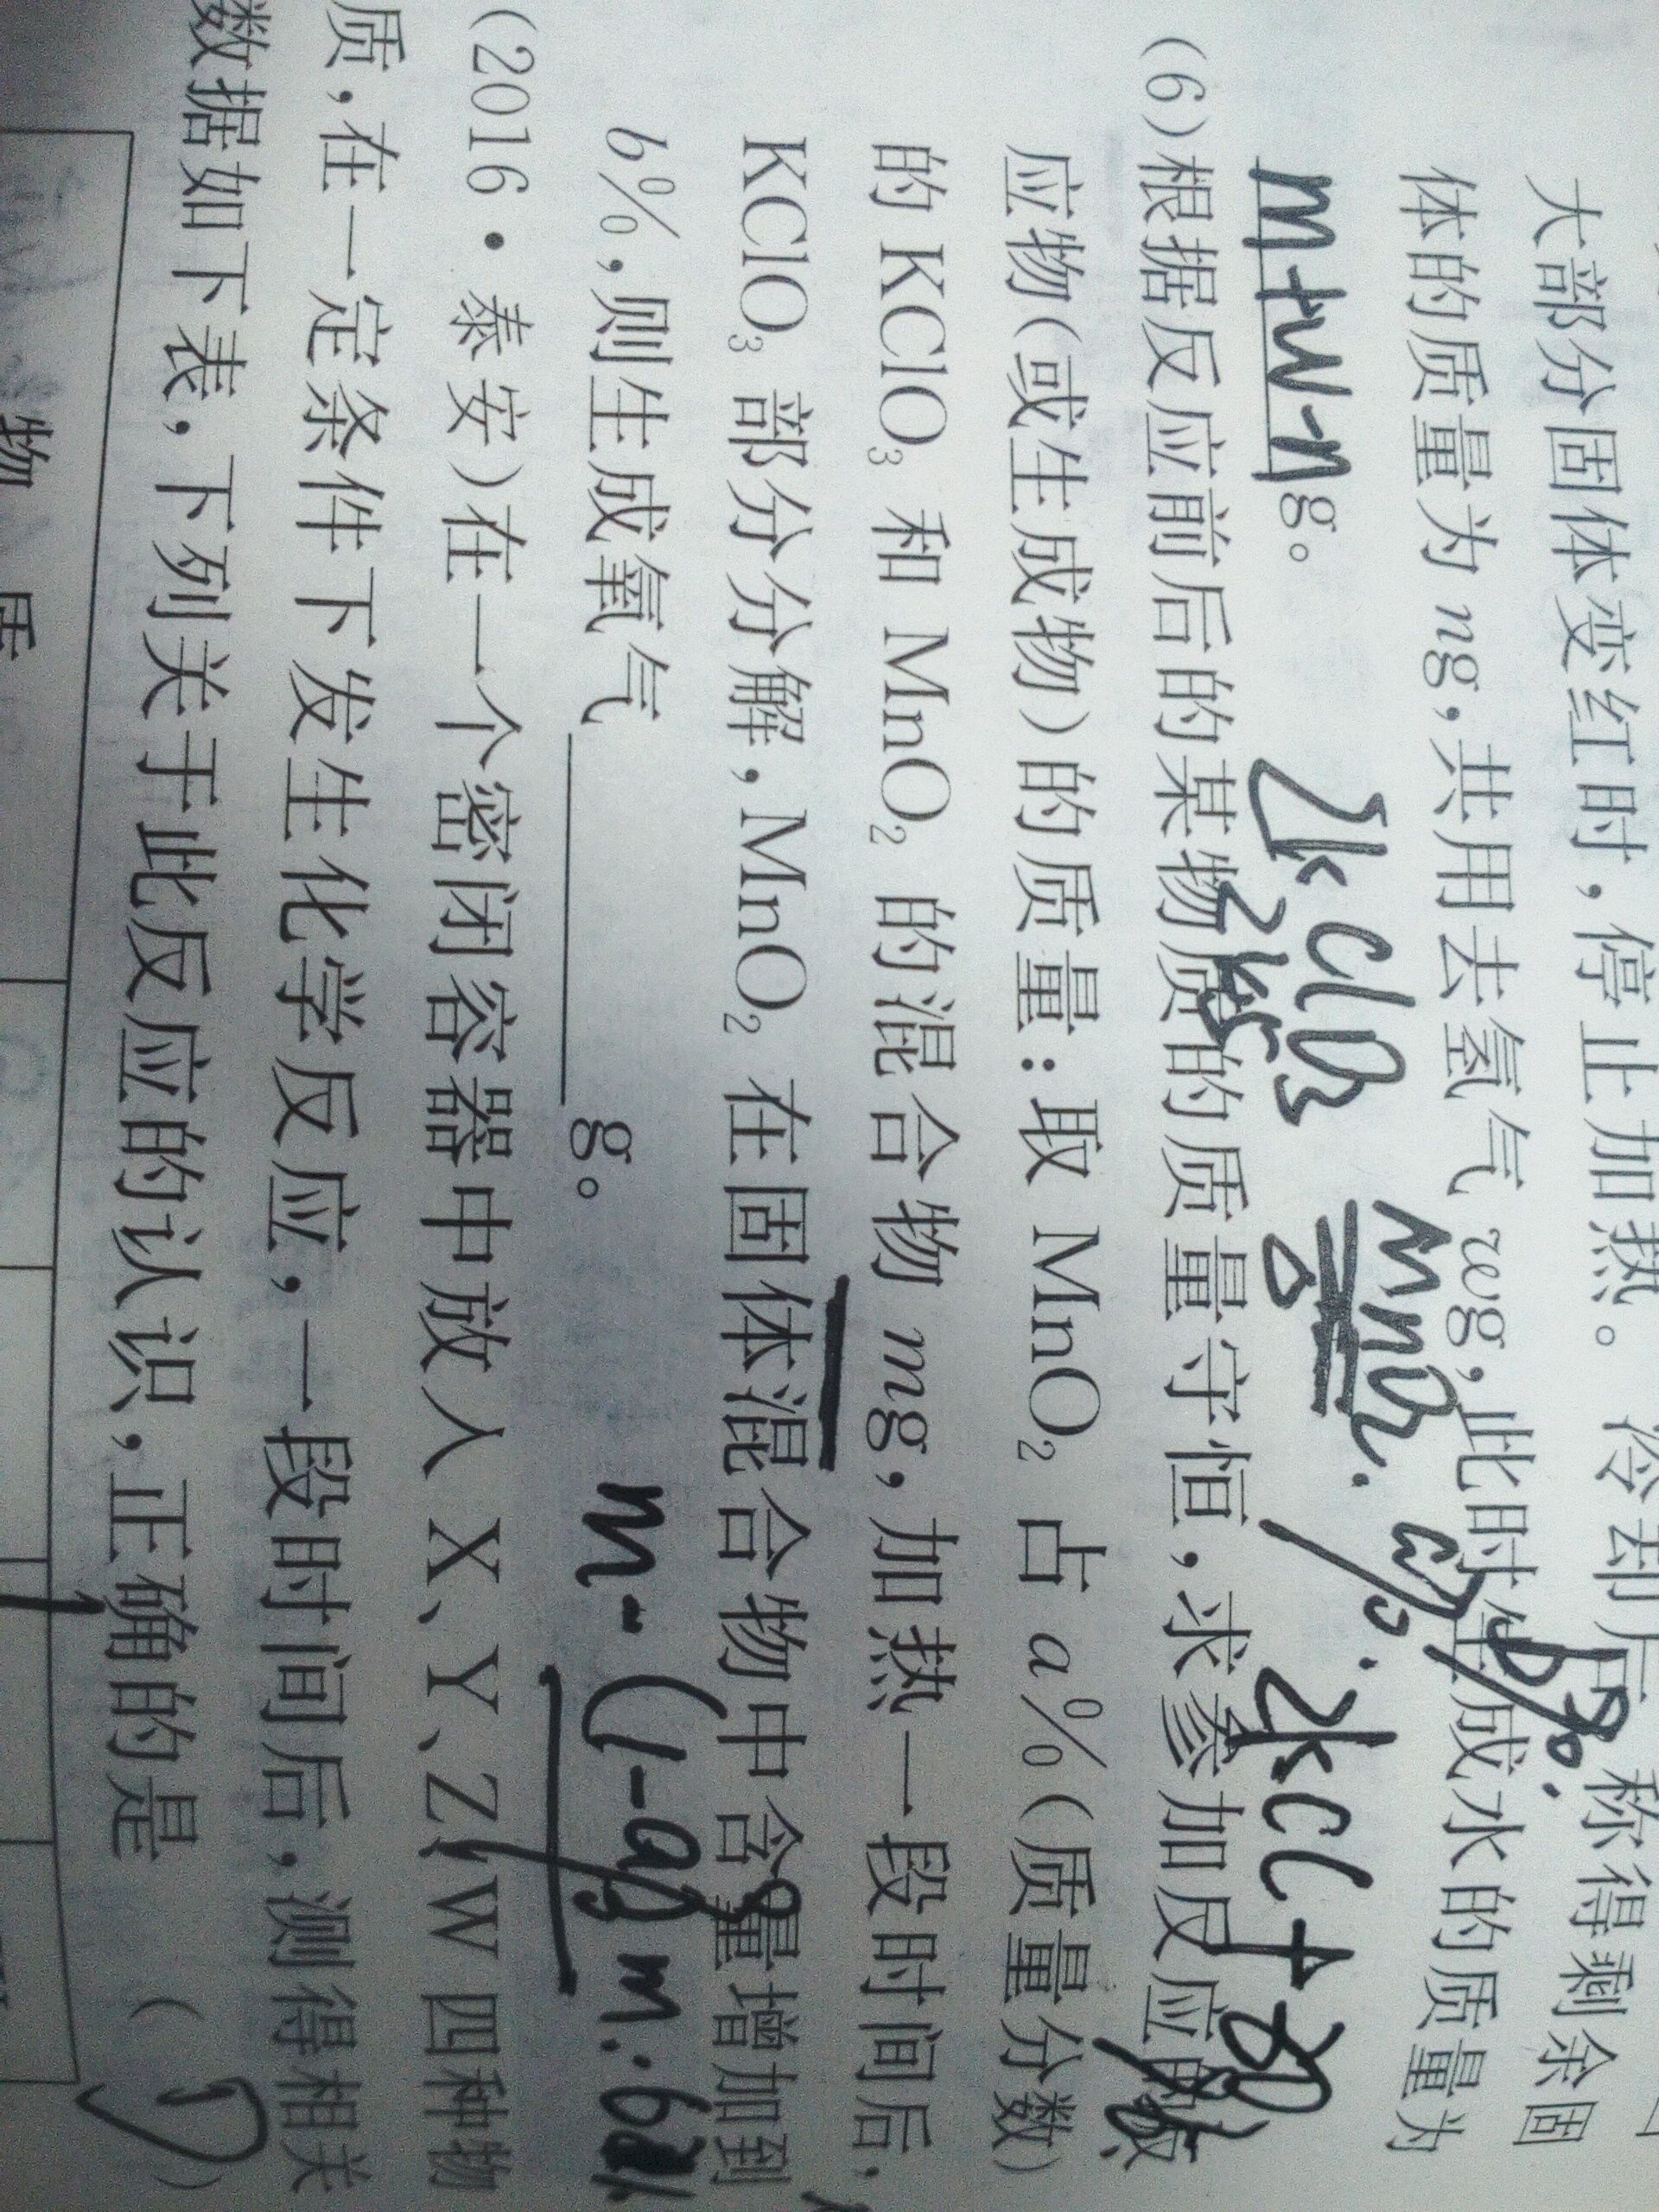 大部分固体变红时,停止加热。冷却后,称得剩余固
体的质量为 ng,共用去氢气 wg,此时生成水的质量为
m+w-n g。
2KClO3 MnO2 2KCl+3O2
(6)根据反应前后的某物质的质量守恒,求参加反应的反
应物(或生成物)的质量:取 MnO₂ 占 a%(质量分数)
的 KClO₃ 和 MnO₂ 的混合物 mg,加热一段时间后,
KClO₃ 部分分解,MnO₂ 在固体混合物中含量增加到
b%,则生成氧气________g。
(2016·泰安)在一个密闭容器中放入 X、Y、Z、W 四种物
质,在一定条件下发生化学反应,一段时间后,测得相关
数据如下表,下列关于此反应的认识,正确的是 ( D )
物 质